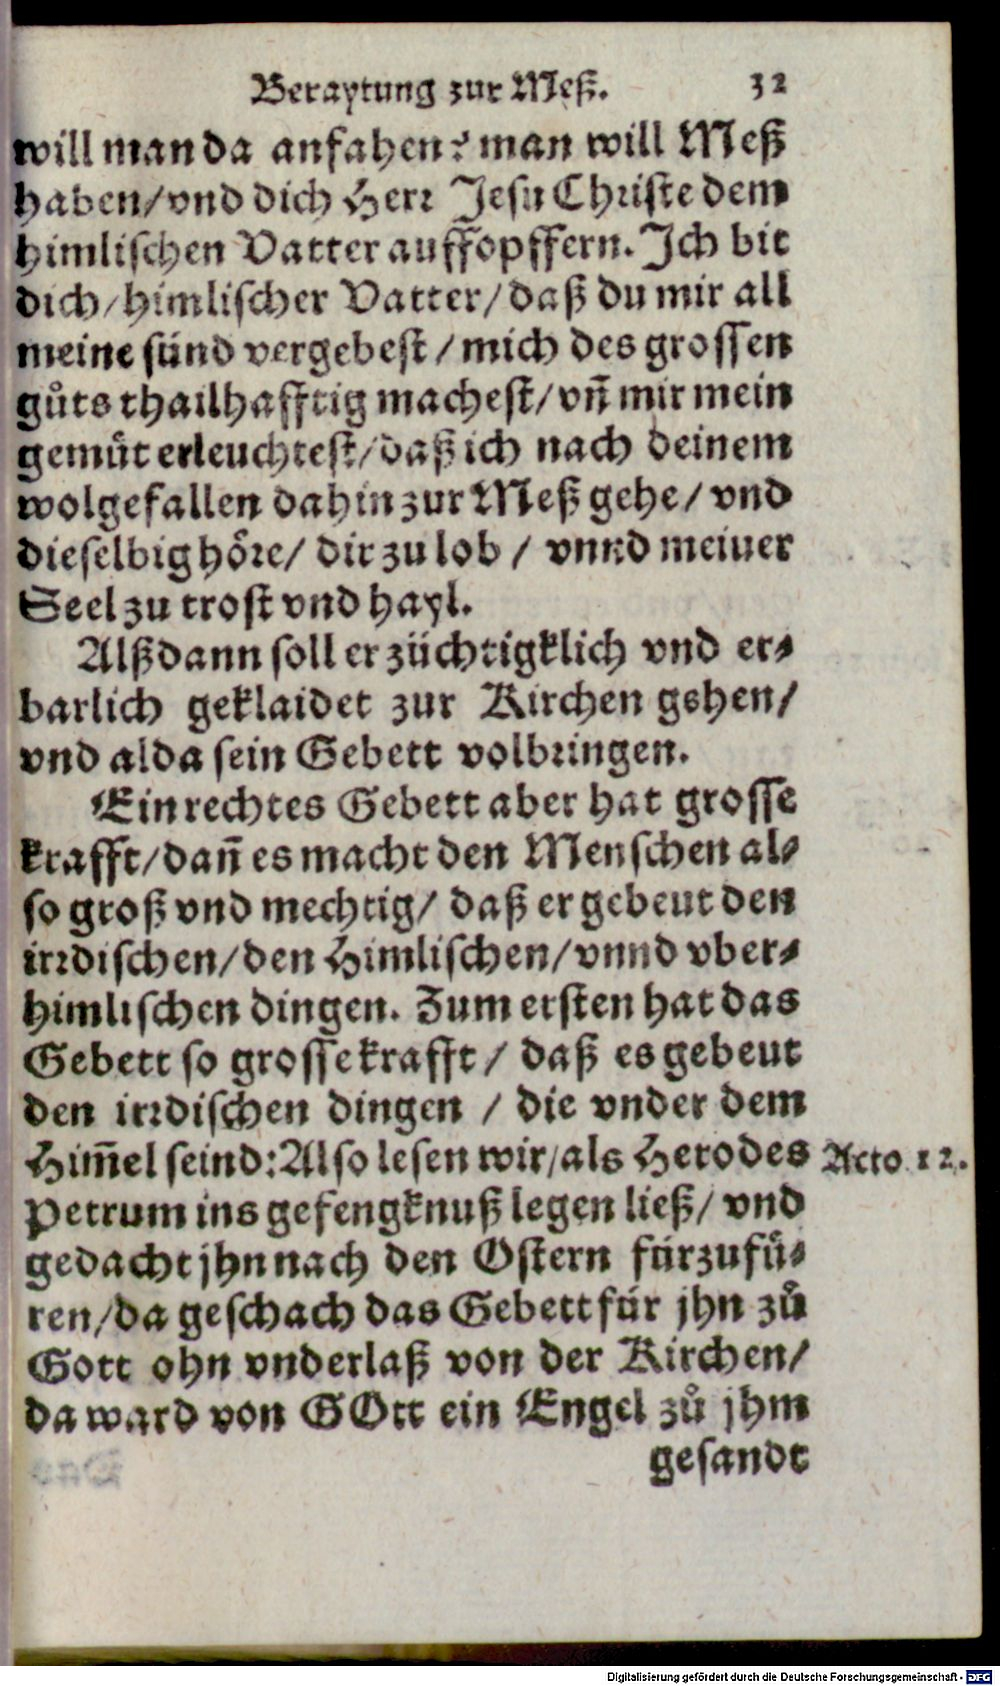 Beraytung zur Meß. 32
will man da anfahen? man will Meß
haben/vnd dich Herr Jesu Christe dem
himlischen Vatter auffopffern. Ich bit
dich/himlischer Vatter/daß du mir all
meine sünd vergebest/mich des grossen
gůts thailhafftig machest/vñ mir mein
gemüt erleuchtest/daß ich nach deinem
wolgefallen dahin zur Meß gehe/vnd
dieselbig höre/dir zu lob/vnnd meiuer
Seel zu trost vnd hayl.
Alßdann soll er züchtigklich vnd er-
barlich geklaidet zur Kirchen gehen/
vnd alda sein Gebett volbringen.
Ein rechtes Gebett aber hat grosse
krafft/dañ es macht den Menschen al-
so groß vnd mechtig/daß er gebeut den
irrdischen/den Himlischen/vnnd vber-
himlischen dingen. Zum ersten hat das
Gebett so grosse krafft/daß es gebeut
den irrdischen dingen/die vnder dem
Him̃el seind: Also lesen wir/als Herodes Acto 12.
Petrum ins gefengknuß legen ließ/vnd
gedacht jhn nach den Ostern fürzufü-
ren/da geschach das Gebett für jhn zů
Gott ohn vnderlaß von der Kirchen/
da ward von GOtt ein Engel zů jhm
gesandt
Digitalisierung gefördert durch die Deutsche Forschungsgemeinschaft - DFG